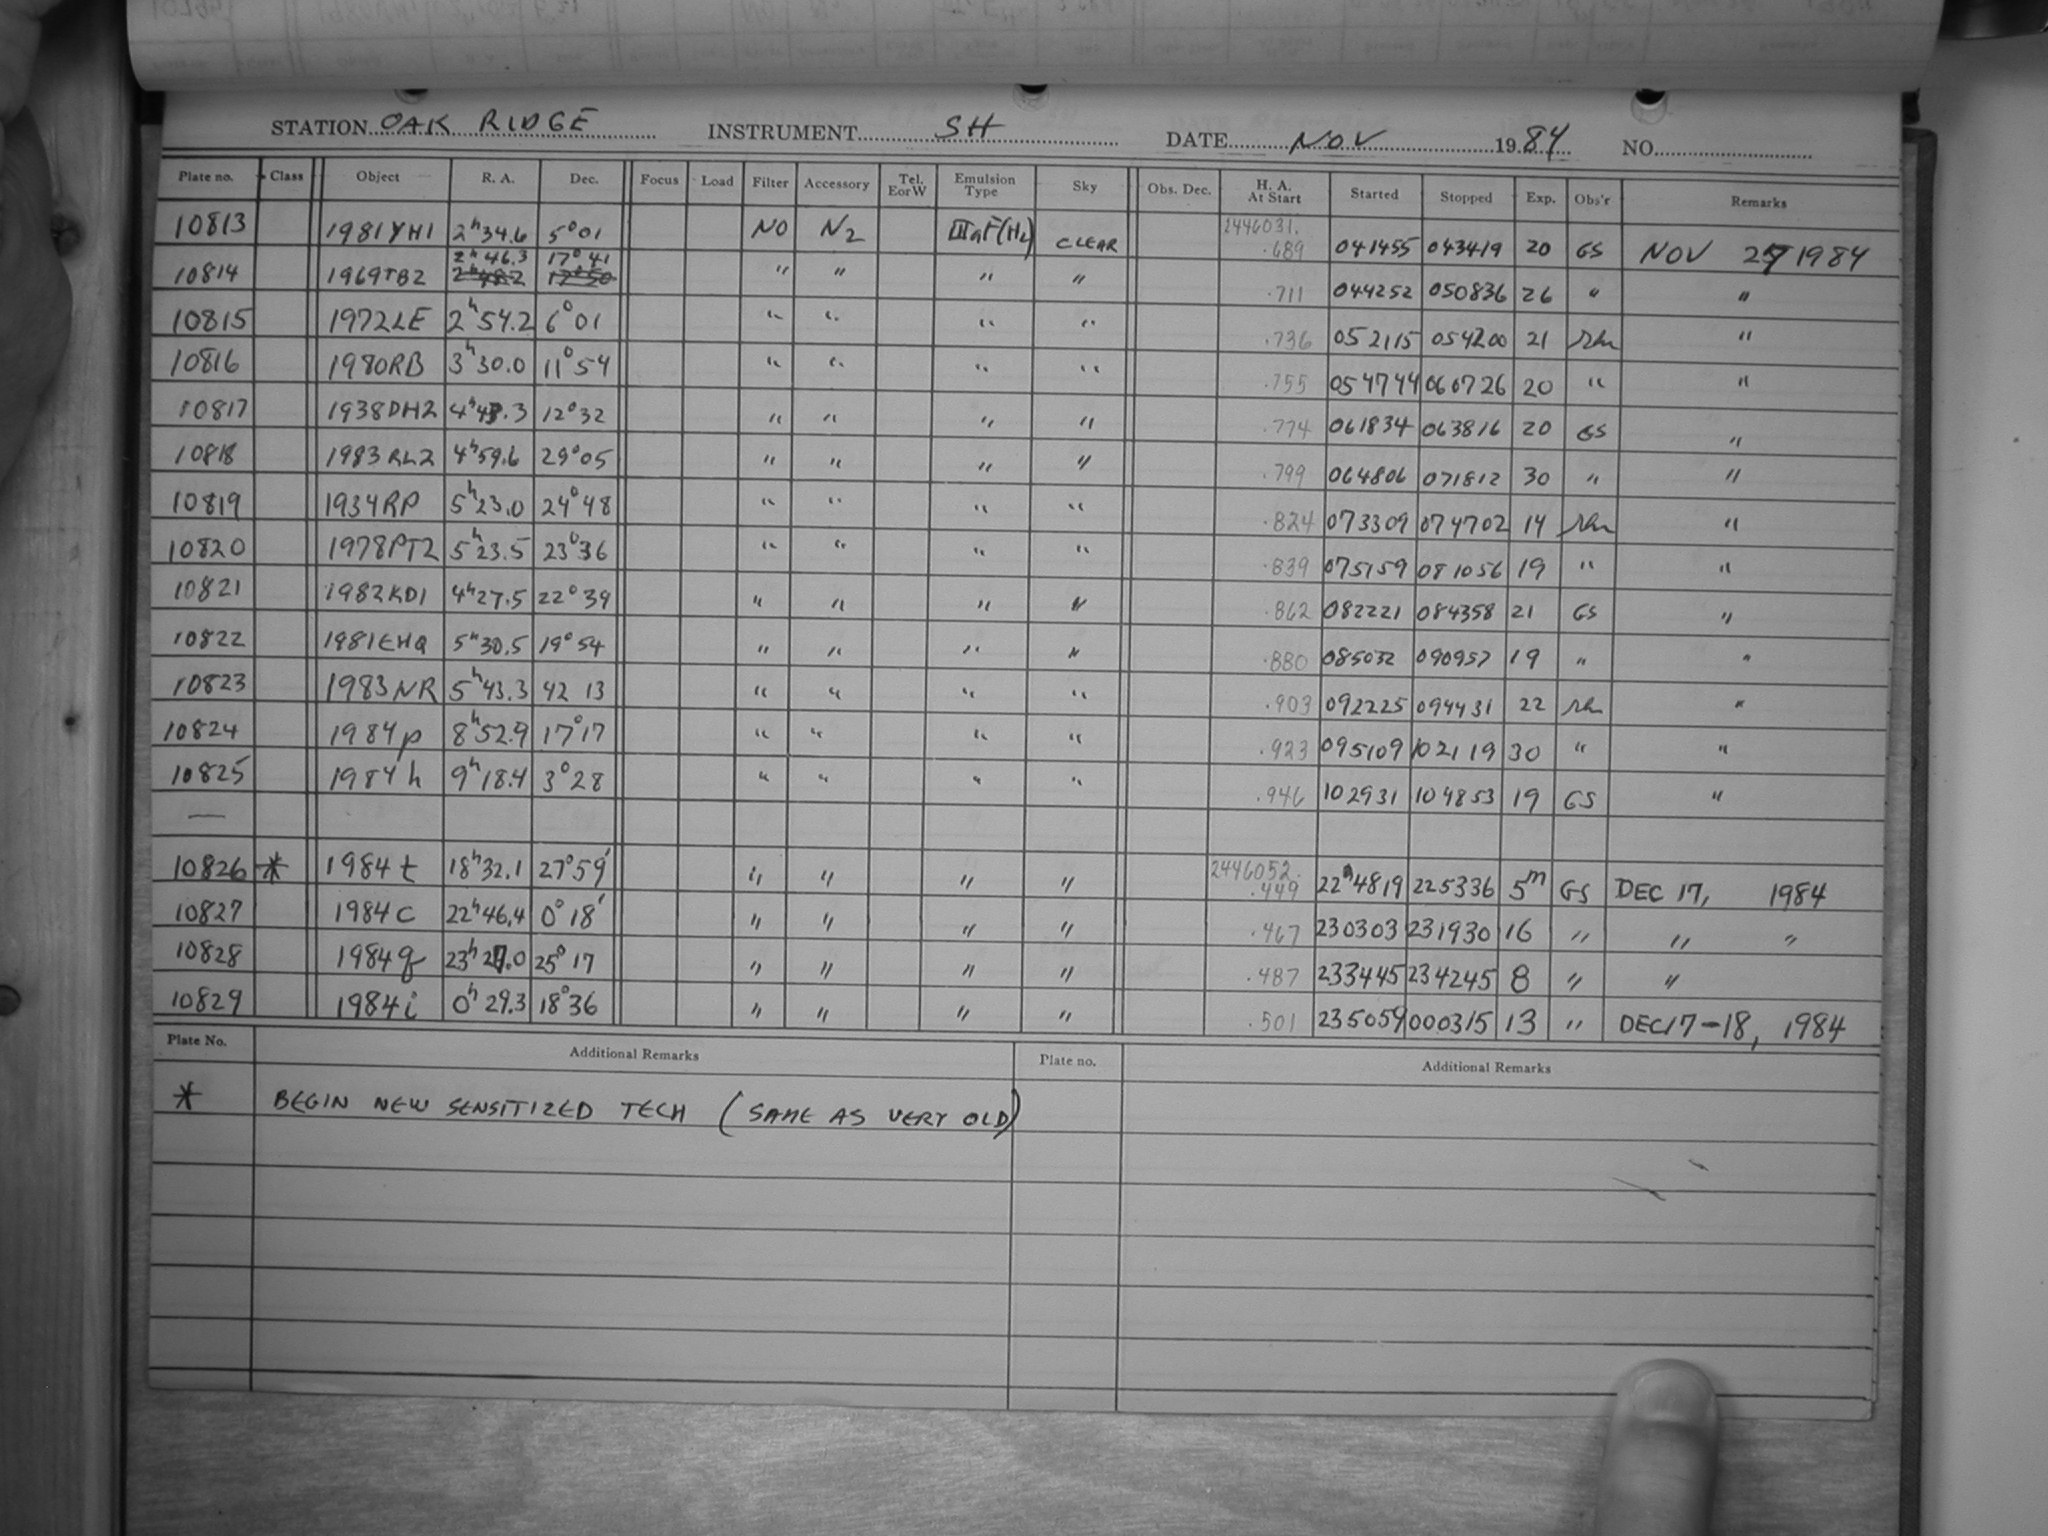 STATION OAK RIDGE INSTRUMENT SH DATE NOV 1984 NO.
Plate no. Class Object R. A. Dec. Focus Load Filter Accessory Tel. EorW Emulsion Type Sky Obs. Dec. H. A. At Start Started Stopped Exp. Obs'r Remarks
10813 1981YH1 2h34.6 5°01 NO N2 IIIaF(H2) CLEAR 2446031. .689 041455 043419 20 GS NOV 1984
10814 1969TB2 2h46.3 17°41 " " " " .711 044252 050836 26 " "
10815 1972LE 2h54.2 6°01 " " " " .736 052115 054200 21 "
10816 1980RB 3h30.0 11°54 " " " " .755 054744 060726 20 " "
10817 1938DH2 12°32 " " " " .774 061834 063816 20 GS "
10818 1983RL2 4h59.6 29°05 " " " " .799 064806 071812 30 " "
10819 1934RP 5h23.0 24°48 " " " " .824 073309 074702 14 "
10820 1978PT2 5h23.5 23°36 " " " " .839 075159 081056 19 " "
10821 1982KD1 4h27.5 22°39 " " " " .862 082221 084358 21 GS "
10822 1981EHQ 5h30.5 19°54 " " " " .880 085032 090957 19 " "
10823 1983NR 5h43.3 42 13 " " " " .903 092225 094431 22 "
10824 1984p 8h52.9 17°17 " " " " .923 095109 102119 30 " "
10825 1984h 9h18.4 3°28 " " " " .946 102931 104853 19 GS "
—
10826 * 1984t 18h32.1 27°59' " " " " 2446052. .449 22h4819 225336 5m GS DEC 17, 1984
10827 1984c 22h46.4 0°18' " " " " .467 230303 231930 16 " " "
10828 1984q 25°17 " " " " .487 233445 234245 8 " "
10829 1984i 0h29.3 18°36 " " " " .501 235059 000315 13 " DEC17-18, 1984
Plate No. Additional Remarks Plate no. Additional Remarks
* BEGIN NEW SENSITIZED TECH (SAME AS VERY OLD)